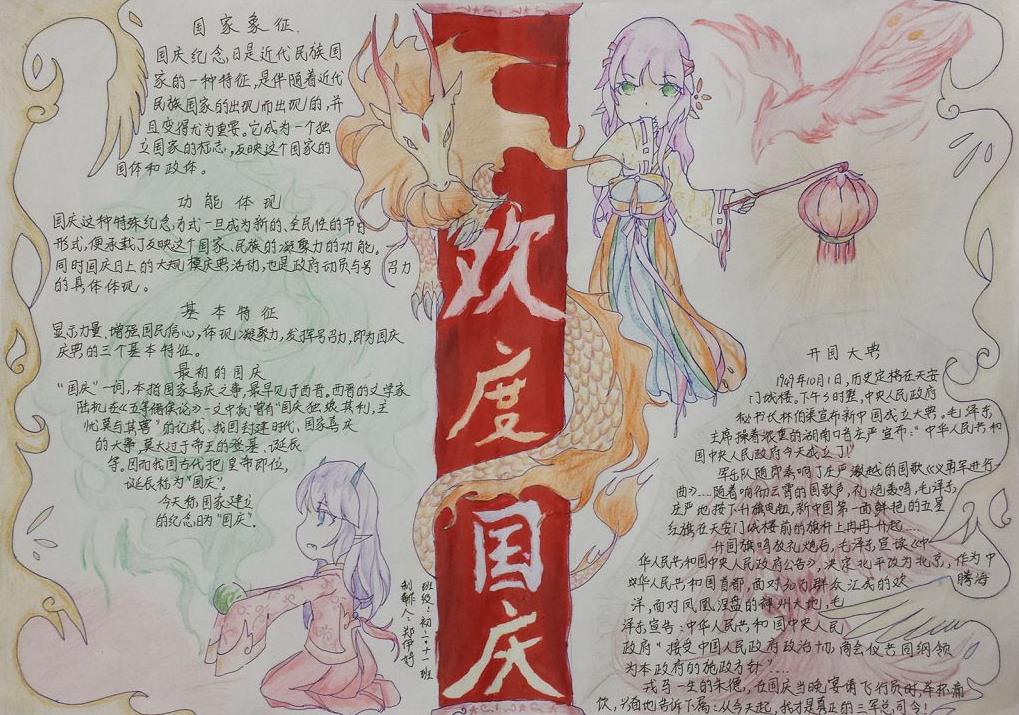 国家象征.
国庆纪念日是近代民族国
家的一种特征,是伴随着近代
民族国家的出现而出现的,并
且变得尤为重要。它成为一个独
立国家的标志,反映这个国家的
国体和政体。
功能体现
国庆这种特殊纪念方式一旦成为新的、全民性的节日
形式,便承载了反映这个国家、民族的凝聚力的功能,
同时国庆日上的大规模庆典活动,也是政府动员与号召力
的具体体现。
基本特征
显示力量、增强国民信心,体现凝聚力,发挥号召力,即为国庆
庆典的三个基本特征。
最初的国庆
“国庆”一词,本指国家喜庆之事,最早见于西晋。西晋的文学家
陆机在《五等诸侯论》一文中就曾有“国庆独飨其利,主
忧莫与其害”的记载、我国封建时代、国家喜庆
的大事,莫大过于帝王的登基、诞辰
等。因而我国古代把皇帝即位,
诞辰称为“国庆”。
今天称国家建立
的纪念日为“国庆”。
欢度国庆
班级:初二十一班
制作人:郑伊婷
开国大典
1949年10月1日,历史定格在天安
门城楼。下午3时整,中央人民政府
秘书长林伯渠宣布新中国成立大典。毛泽东
主席操着浓重的湖南口音庄严宣布:“中华人民共和
国中央人民政府今天成立了!”
军乐队随即奏响了庄严激越的国歌《义勇军进行
曲》....随着响彻云霄的国歌声,礼炮轰鸣,毛泽东
庄严地按下升旗电钮,新中国第一面鲜艳的五星
红旗在天安门城楼前的旗杆上冉冉升起....
升国旗鸣放礼炮后,毛泽东宣读《中
华人民共和国中央人民政府公告》,决定北平改为北京,作为中
华人民共和国首都,面对30万群众汇成的欢腾海
洋,面对凤凰涅盘的神州大地,毛
泽东宣告:中华人民共和国中央人民
政府“接受中国人民政府政治协商会议共同纲领
为本政府的施政方针”...
戎马一生的朱德,在国庆当晚宴请飞行员时,举杯痛
饮,兴奋地告诉下属:从今天起,我才是真正的三军总司令!